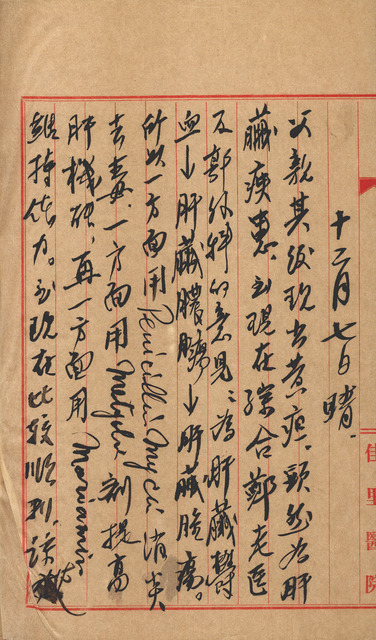 十二月七日晴.
父親其後現出黃疸.顯然為肝
臟疾患.到現在綜合鄭老医
及郭外科的意見:為肝臟鬱
血→肝臟膿瘍→肝臟膿瘍。
所以一方面用Penicillin, Mycin消炎
去毒.一方面用Metylo 劑提高
肝機能,再一方面用Moriamin
維持体力。到現在比較順利.諒
佳里醫院